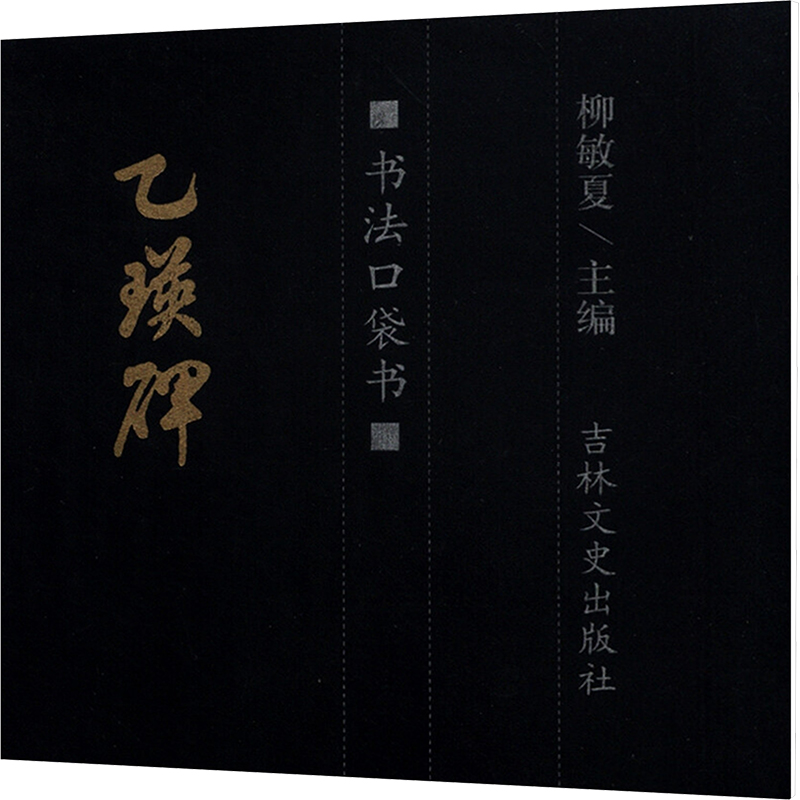 乙瑛碑
■书法口袋书■
柳敏夏/主编
吉林文史出版社